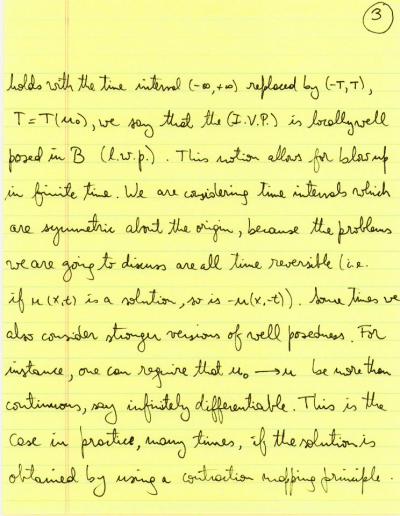 3
holds with the time interval (-∞,+∞) replaced by (-T,T),
T=T(u₀), we say that the (I.V.P.) is locally well
posed in B (l.w.p.). This notion allows for blow up
in finite time. We are considering time intervals which
are symmetric about the origin, because the problems
we are going to discuss are all time reversible (i.e.
if u(x,t) is a solution, so is -u(x,-t)). Some times we
also consider stronger versions of well posedness. For
instance, one can require that u₀ → u be more than
continuous, say infinitely differentiable. This is the
case in practice, many times, if the solution is
obtained by using a contraction mapping principle.